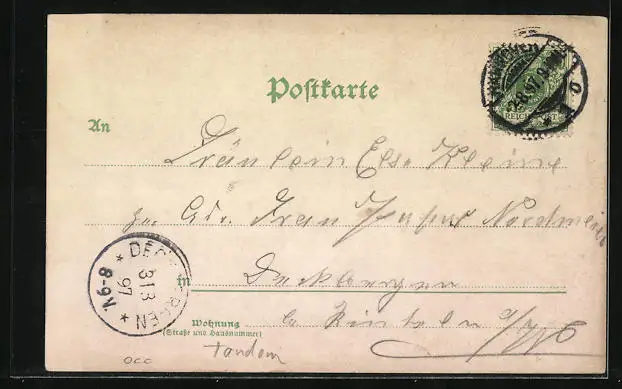 Postkarte
An
Fräulein Else Kleine
p. Adr. Frau Nordmeier
in Deckbergen
b. Rinteln a/W
Wohnung
(Straße und Hausnummer)
REICHSPOST
DECKBERGEN
31 8
97
* 8-9V. *
Tandem
occ